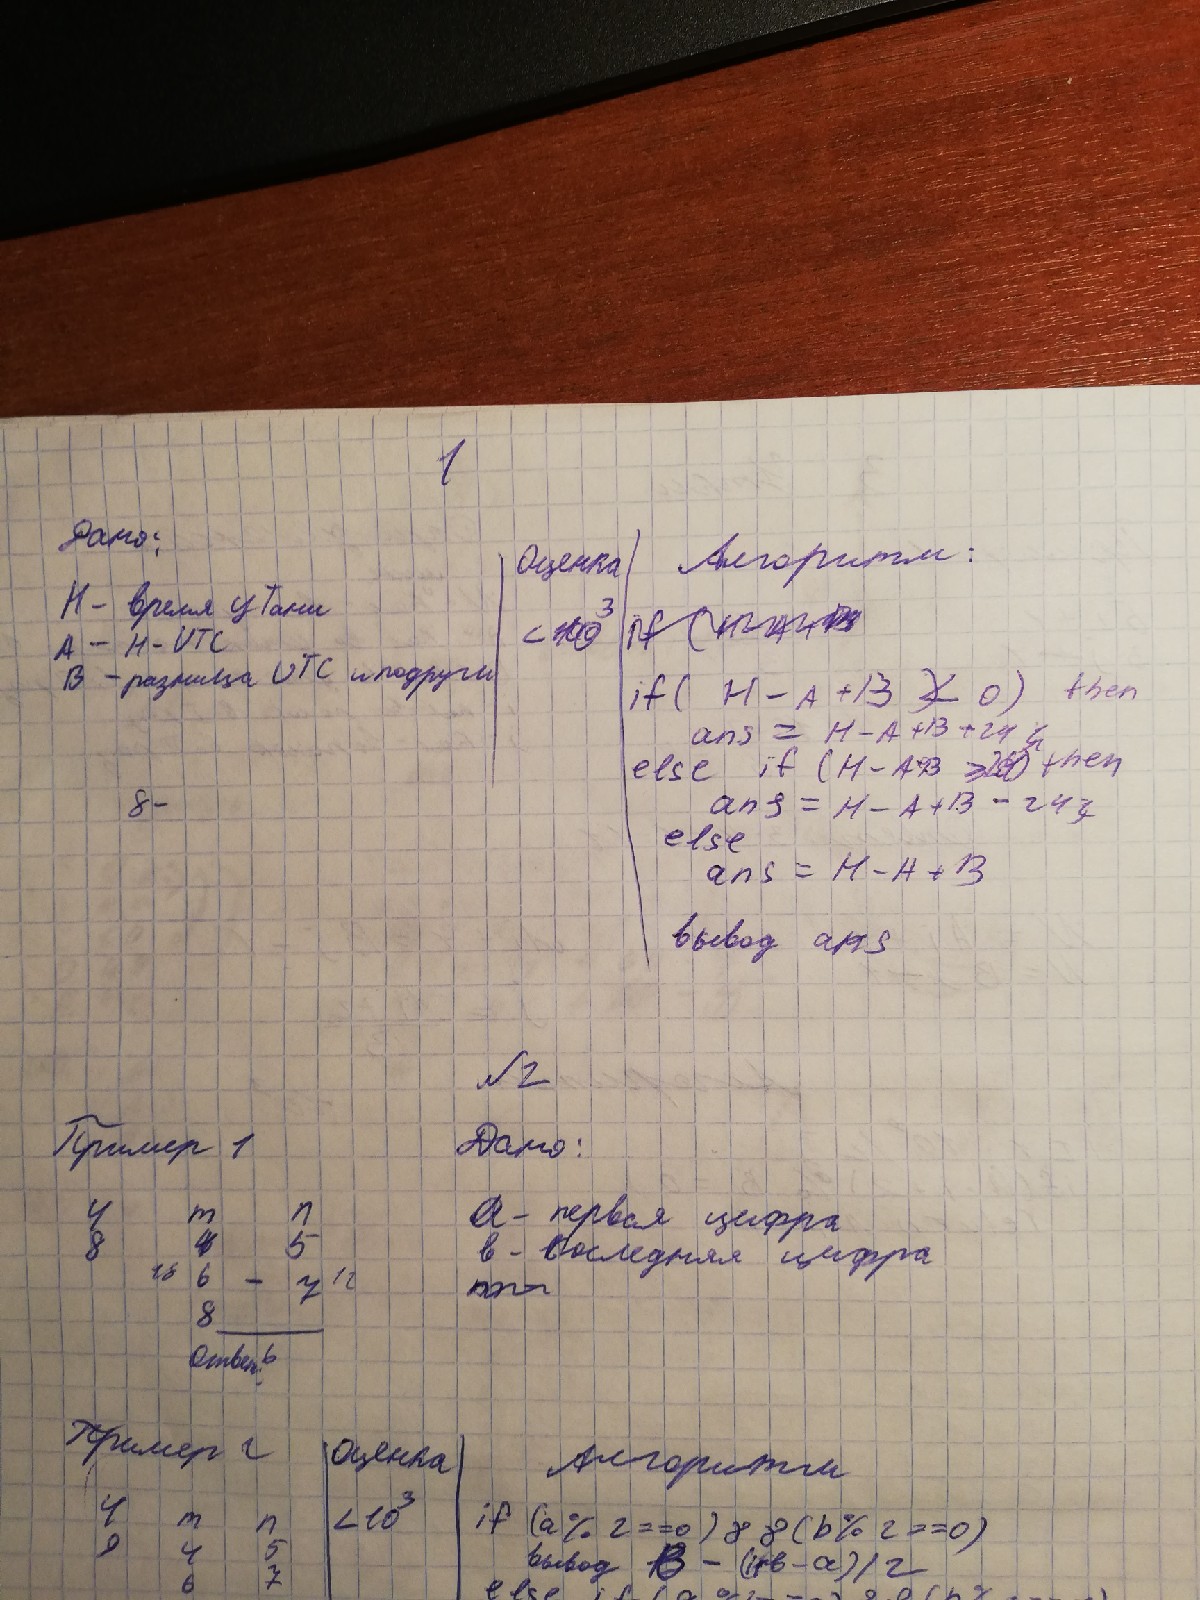 1
Дано:
H - время у Тани
A - H - UTC
B - разница UTC и подруги
8-
Оценка
< 10³
Алгоритм:
if (H-A+B
if( H - A + B < 0) then
ans = H - A + B + 24;
else if (H - A+B ≥ 24) then
ans = H - A + B - 24;
else
ans = H - A + B
вывод ans
№2
Пример 1
4 m n
8 4 5
18 6 - 7 12
8
Ответ: 6
Дано:
a - первая цифра
b - последняя цифра
Пример 2
4 m n
9 4 5
6 7
Оценка
< 10³
Алгоритм
if (a % 2 == 0) && (b % 2 == 0)
вывод B - (1+b-a)/2
else if (a